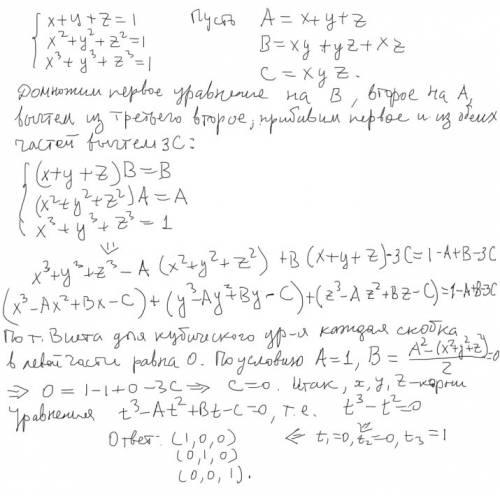 { x+y+z=1 Пусть A = x+y+z
x²+y²+z²=1 B = xy+yz+xz
x³+y³+z³=1 C = xyz.
Домножим первое уравнение на B, второе на A,
вычтем из третьего второе, прибавим первое и из обеих
частей вычтем 3C:
{ (x+y+z)B = B
(x²+y²+z²)A = A
x³+y³+z³ = 1
⇓
x³+y³+z³-A(x²+y²+z²)+B(x+y+z)-3C=1-A+B-3C
(x³-Ax²+Bx-C)+(y³-Ay²+By-C)+(z³-Az²+Bz-C)=1-A+B-3C
По т. Виета для кубического ур-я каждая скобка
в левой части равна 0. По условию A=1, B = (A²-(x²+y²+z²))/2 = 0
⇒ 0 = 1-1+0-3C ⇒ C=0. Итак, x, y, z - корни
уравнения t³-At²+Bt-C=0, т.е. t³-t²=0
⇓
Ответ: (1,0,0) ⇐ t₁=0, t₂=0, t₃=1
(0,1,0)
(0,0,1).